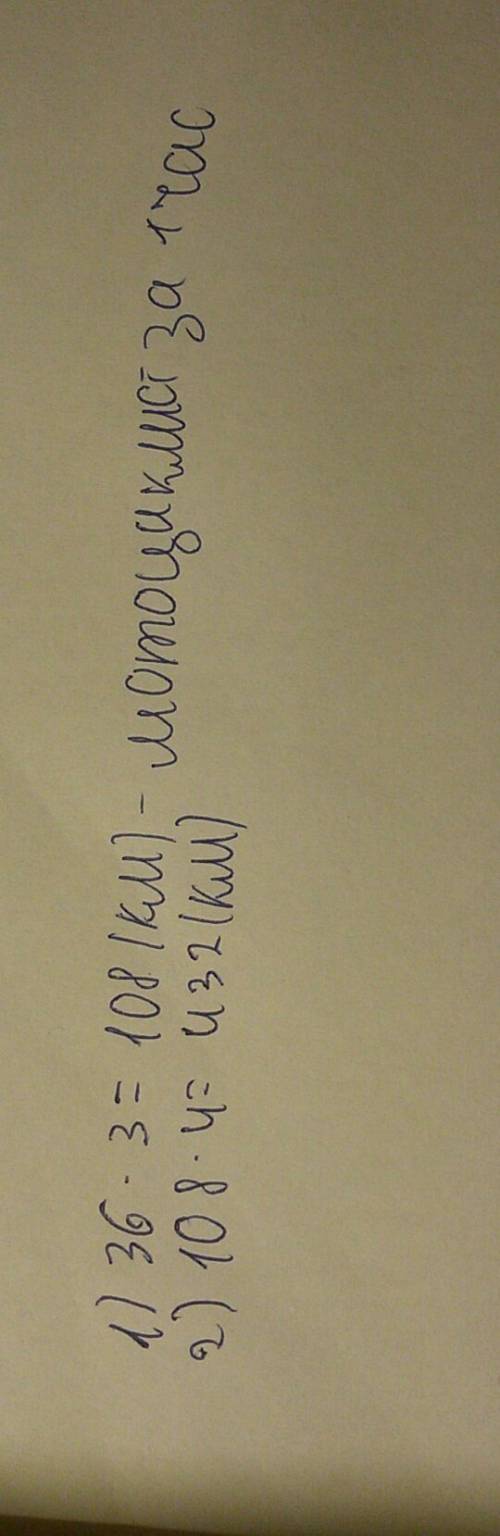 1) 36 · 3 = 108 (км) – мотоциклист за 1 час
2) 108 · 4 = 432 (км)